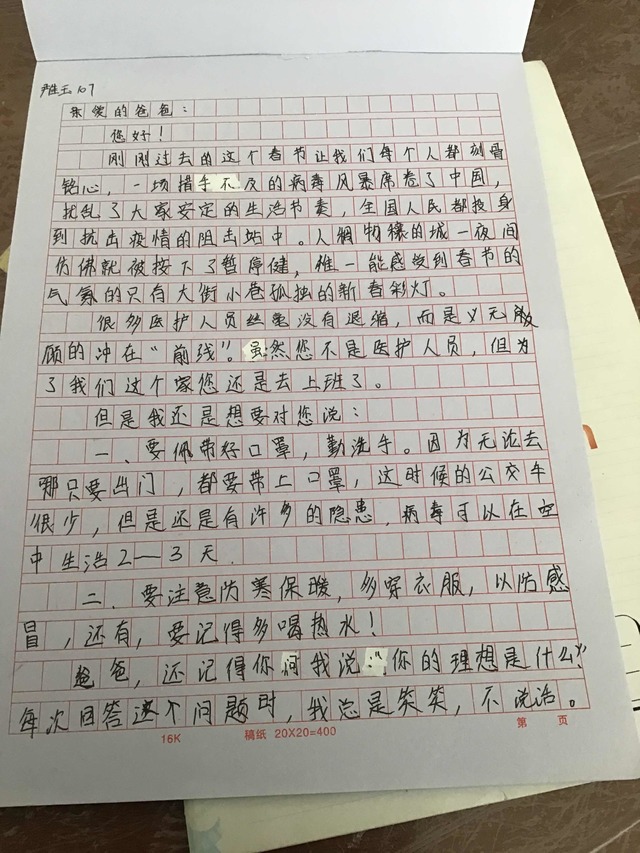 亲爱的爸爸：
您好！
刚刚过去的这个春节让我们每个人都刻骨
铭心，一场措手不及的病毒风暴席卷了中国，
扰乱了大家安定的生活节奏，全国人民都投身
到抗击疫情的阻击站中。人稠物穰的城一夜间
仿佛就被按下了暂停健，惟一能感受到春节的
气氛的只有大街小巷孤独的新春彩灯。
很多医护人员丝毫没有退缩，而是义无反
顾的冲在“前线”。虽然您不是医护人员，但为
了我们这个家您还是去上班了。
但是我还是想要对您说：
一、要佩带好口罩，勤洗手。因为无论去
哪只要出门，都要带上口罩，这时候的公交车
很少，但是还是有许多的隐患，病毒可以在空
中生活2—3天.
二、要注意防寒保暖，多穿衣服，以防感
冒，还有，要记得多喝热水！
爸爸，还记得你问我说：“你的理想是什么”
每次回答这个问题时，我总是笑笑，不说话。
16K 稿纸 20X20=400 第 页